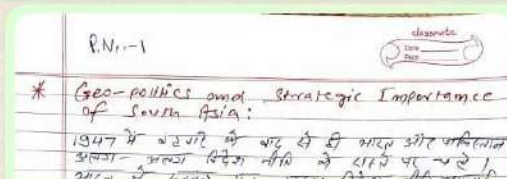 P.N.-1
classmate
Date
Page
* Geo-politics and Strategic Importance
of South Asia:
1947 में बंटवारे के बाद से ही भारत और पाकिस्तान
अलग-अलग विदेश नीति के रास्ते पर चले।